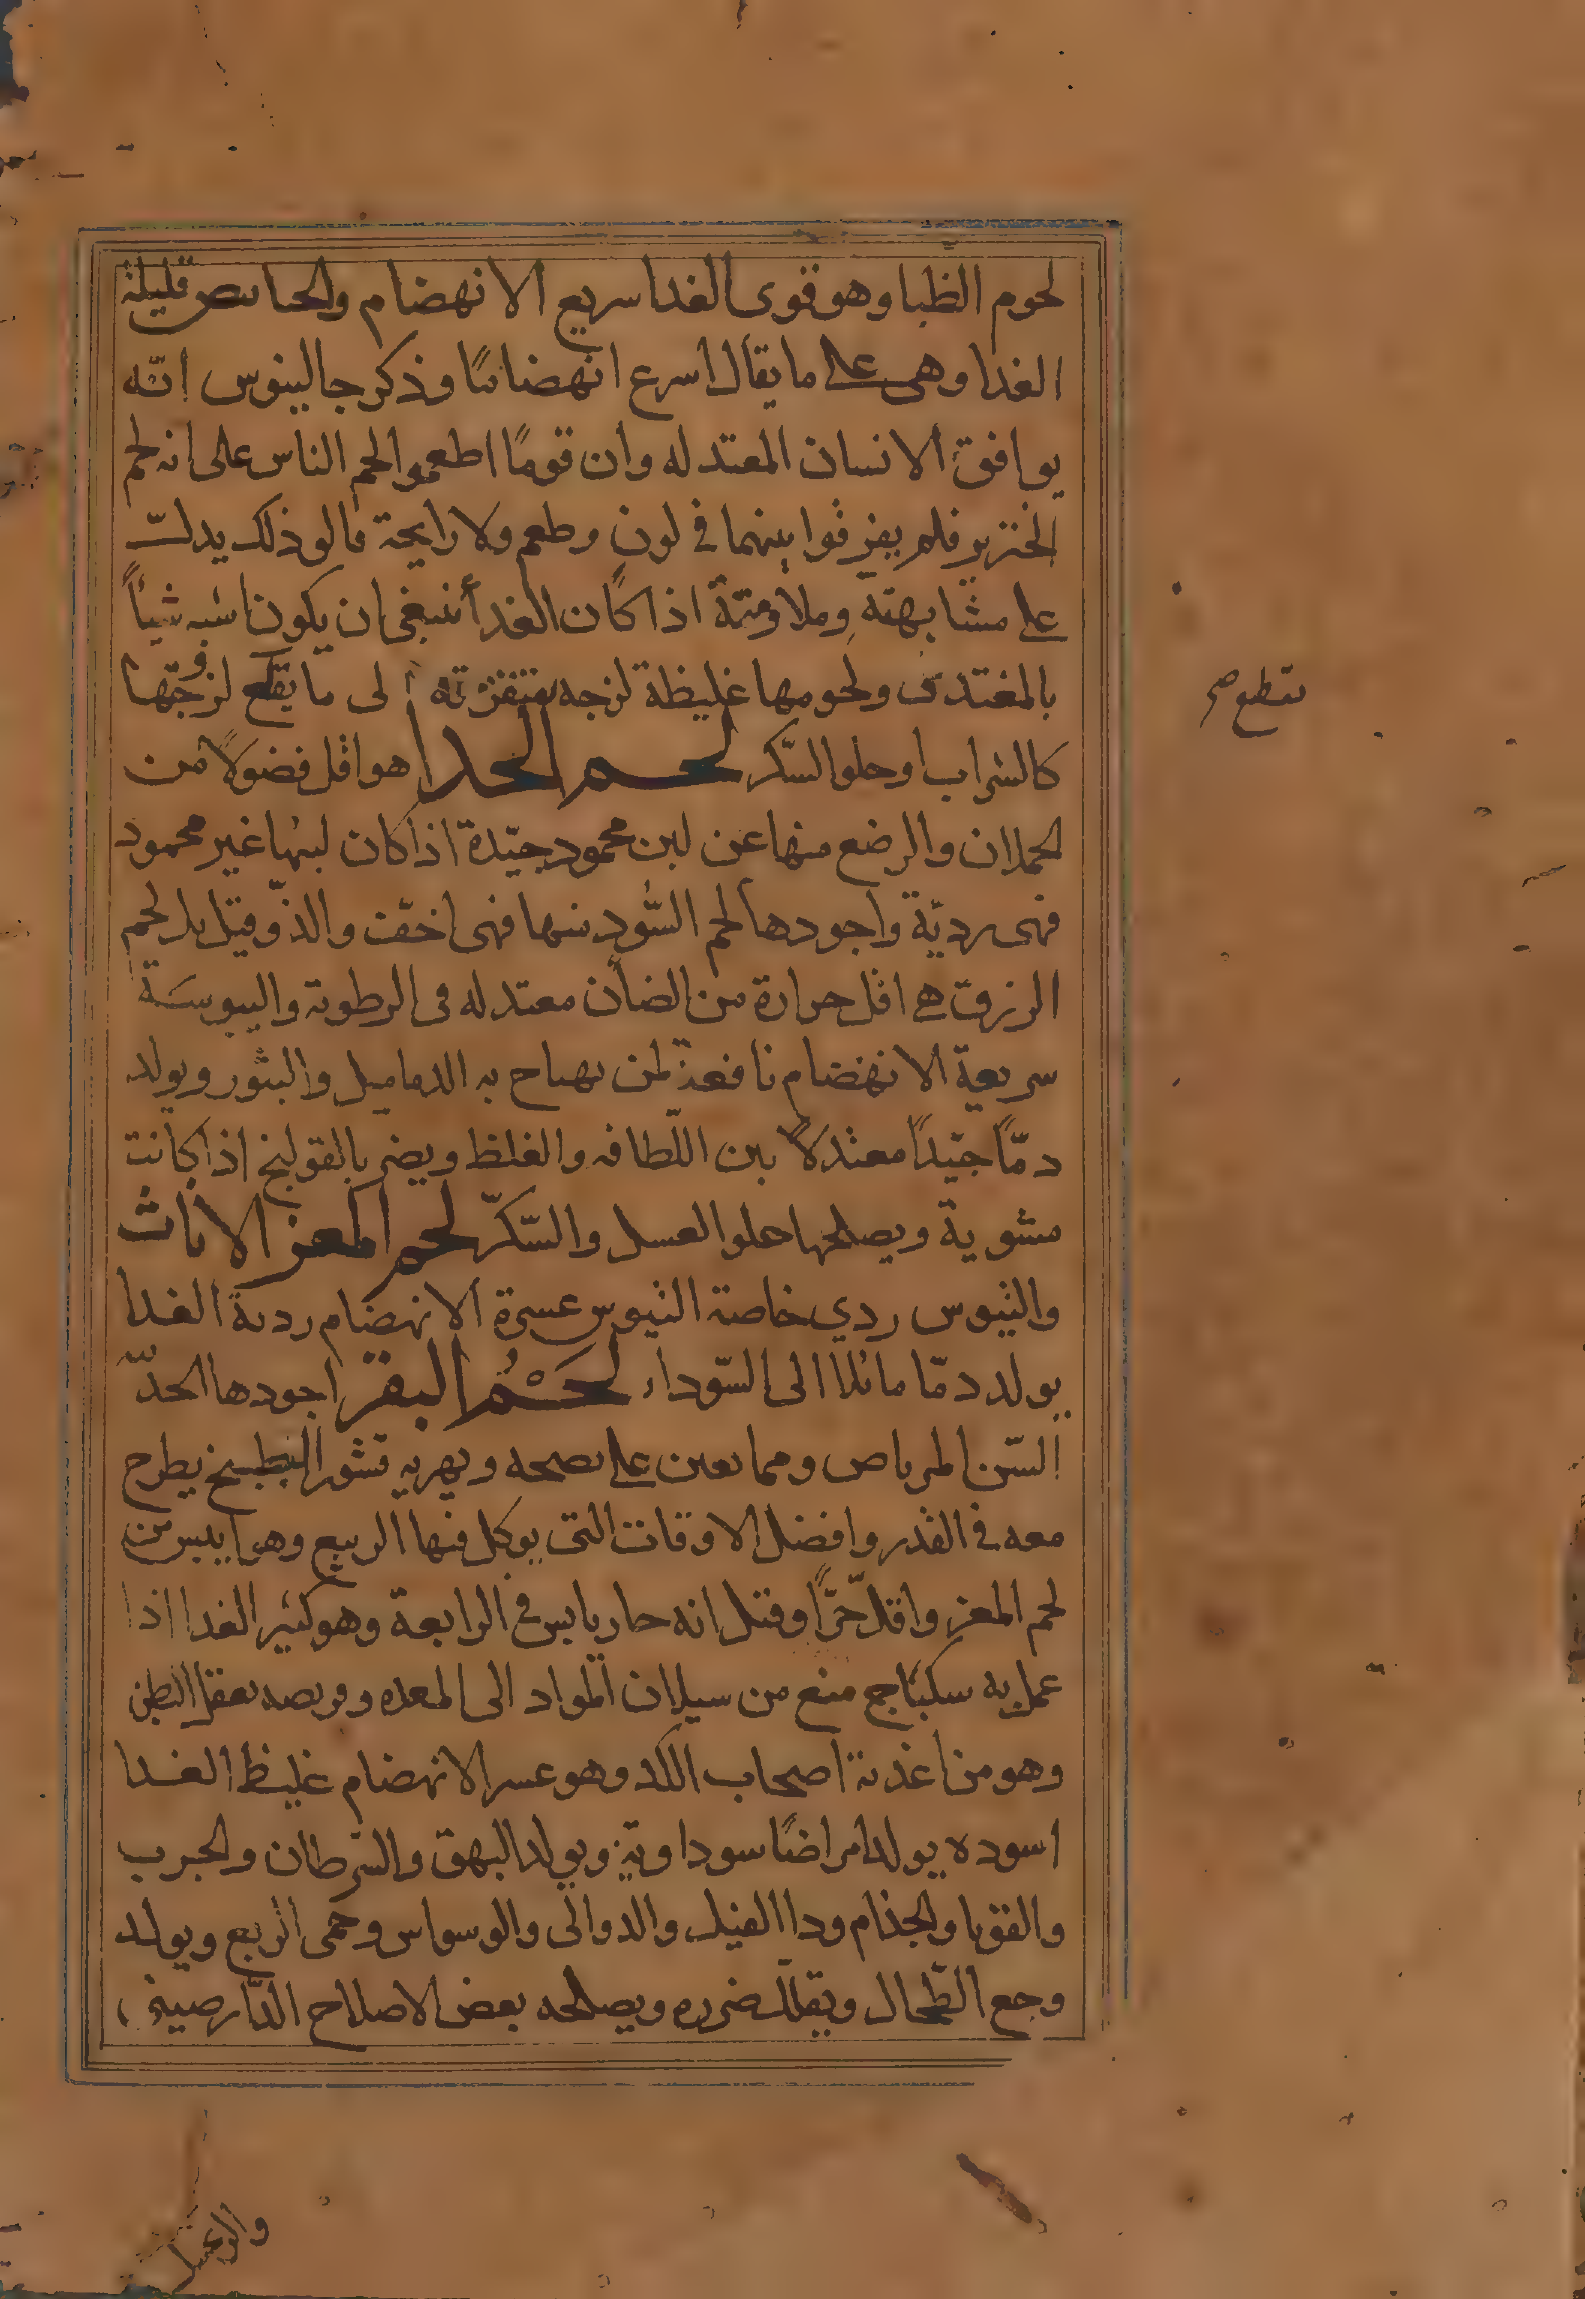 لحوم الظبا وهو قوى الغدا سريع الانهضام والحنانيص قليلة
الغدا وهى على ما يقال اسرع انهضاما وذكر جالينوس انّه
يوافق الانسان المعتدله وان قومًا اطعموا لحم الناس على انه لحم
الخنزير فلم يفرقوا بينهما فى لون وطعم ولا رايحة قالو ذلك يدل
على مشابهته وملاومته اذا كان الغدا ينبغى ان يكون اشبه شيأً
بالمغتدى ولحومها غليظة لزجه الى ما يقطع لزوجتها
كالشراب او حلو السّكر لحم الجدا هو اقل فضولاً من
الحملان والرضع منها عن لبن محمود جيّدة اذا كان لبنها غير محمود
فهى رديّة واجودها لحم السُّود منها فهى اخف والذّ وقيل بل لحم
الزرق هى اقل حرارة من الضان معتدله فى الرطوبة واليبوسَة
سريعة الانهضام نافعة لمن يهتاج به الدماميل والبثور ويولد
دمًّا جيّدًا معتدلاً بين اللّطافه والغلظ ويضر بالقولنج اذا كانت
مشوية ويصلحها حلو العسل والسّكّر لحم المعز الاناث
والتيوس ردي خاصة التيوس عسرة الانهضام ردية الغدا
يولد دمّا مائلا الى السّوداء لحَمُ البقر اجودها الحدّ
السّن المرباص ومما يعين على نضجه ويهريه قشور البطيخ يطرح
معه فى القدر وافضل الاوقات التى يوكل فيها الربيع وهو ايبس من
لحم المعز واقل حرًّا وقيل انه حار يابس فى الرابعة وهو كثير الغدا اذا
عمل به سكباج منع من سيلان المواد الى المعده وقريصه يعقل البطن
وهو من اغذية اصحاب الكد وهو عسر الانهضام غليظ الغدا
اسوده يولد امراضًا سوداوية ويولد البهق والسّرطان والجرب
والقوبا والجذام ودا الفيل والدوالى والوسواس وحمى الربع ويولد
وجع الطّحال ويقلل ضرره ويصلحه بعض الاصلاح الدّارصينى
يقطع صح